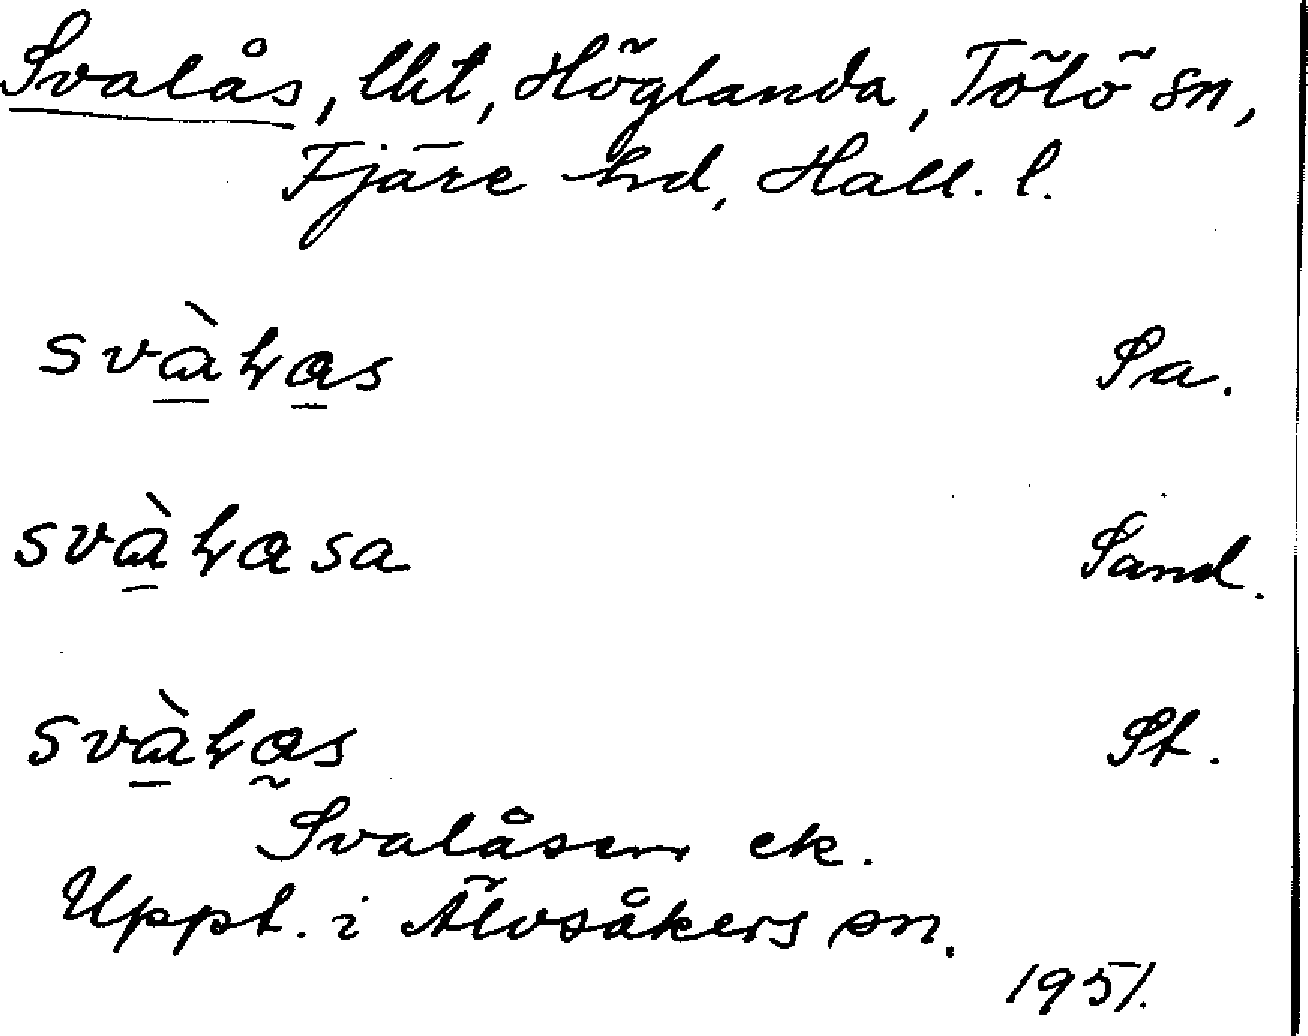 Svalås, lht, Höglanda, Tölö sn,
Fjäre hd, Hall. l.
Sa.
Sand.
St.
Svalåsen ek.
Uppt. i Älvsåkers sn.
1951.